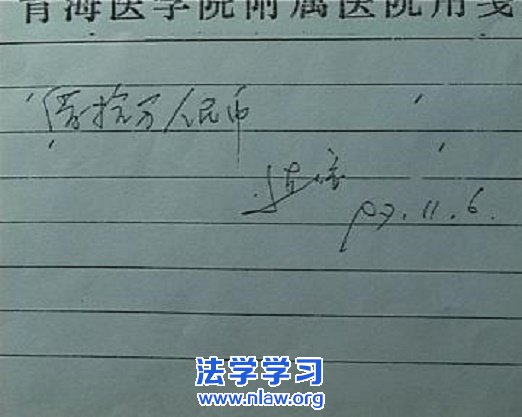 青海医学院附属医院用笺
借拾万人民币
07.11.6.
法学学习
www.nlaw.org